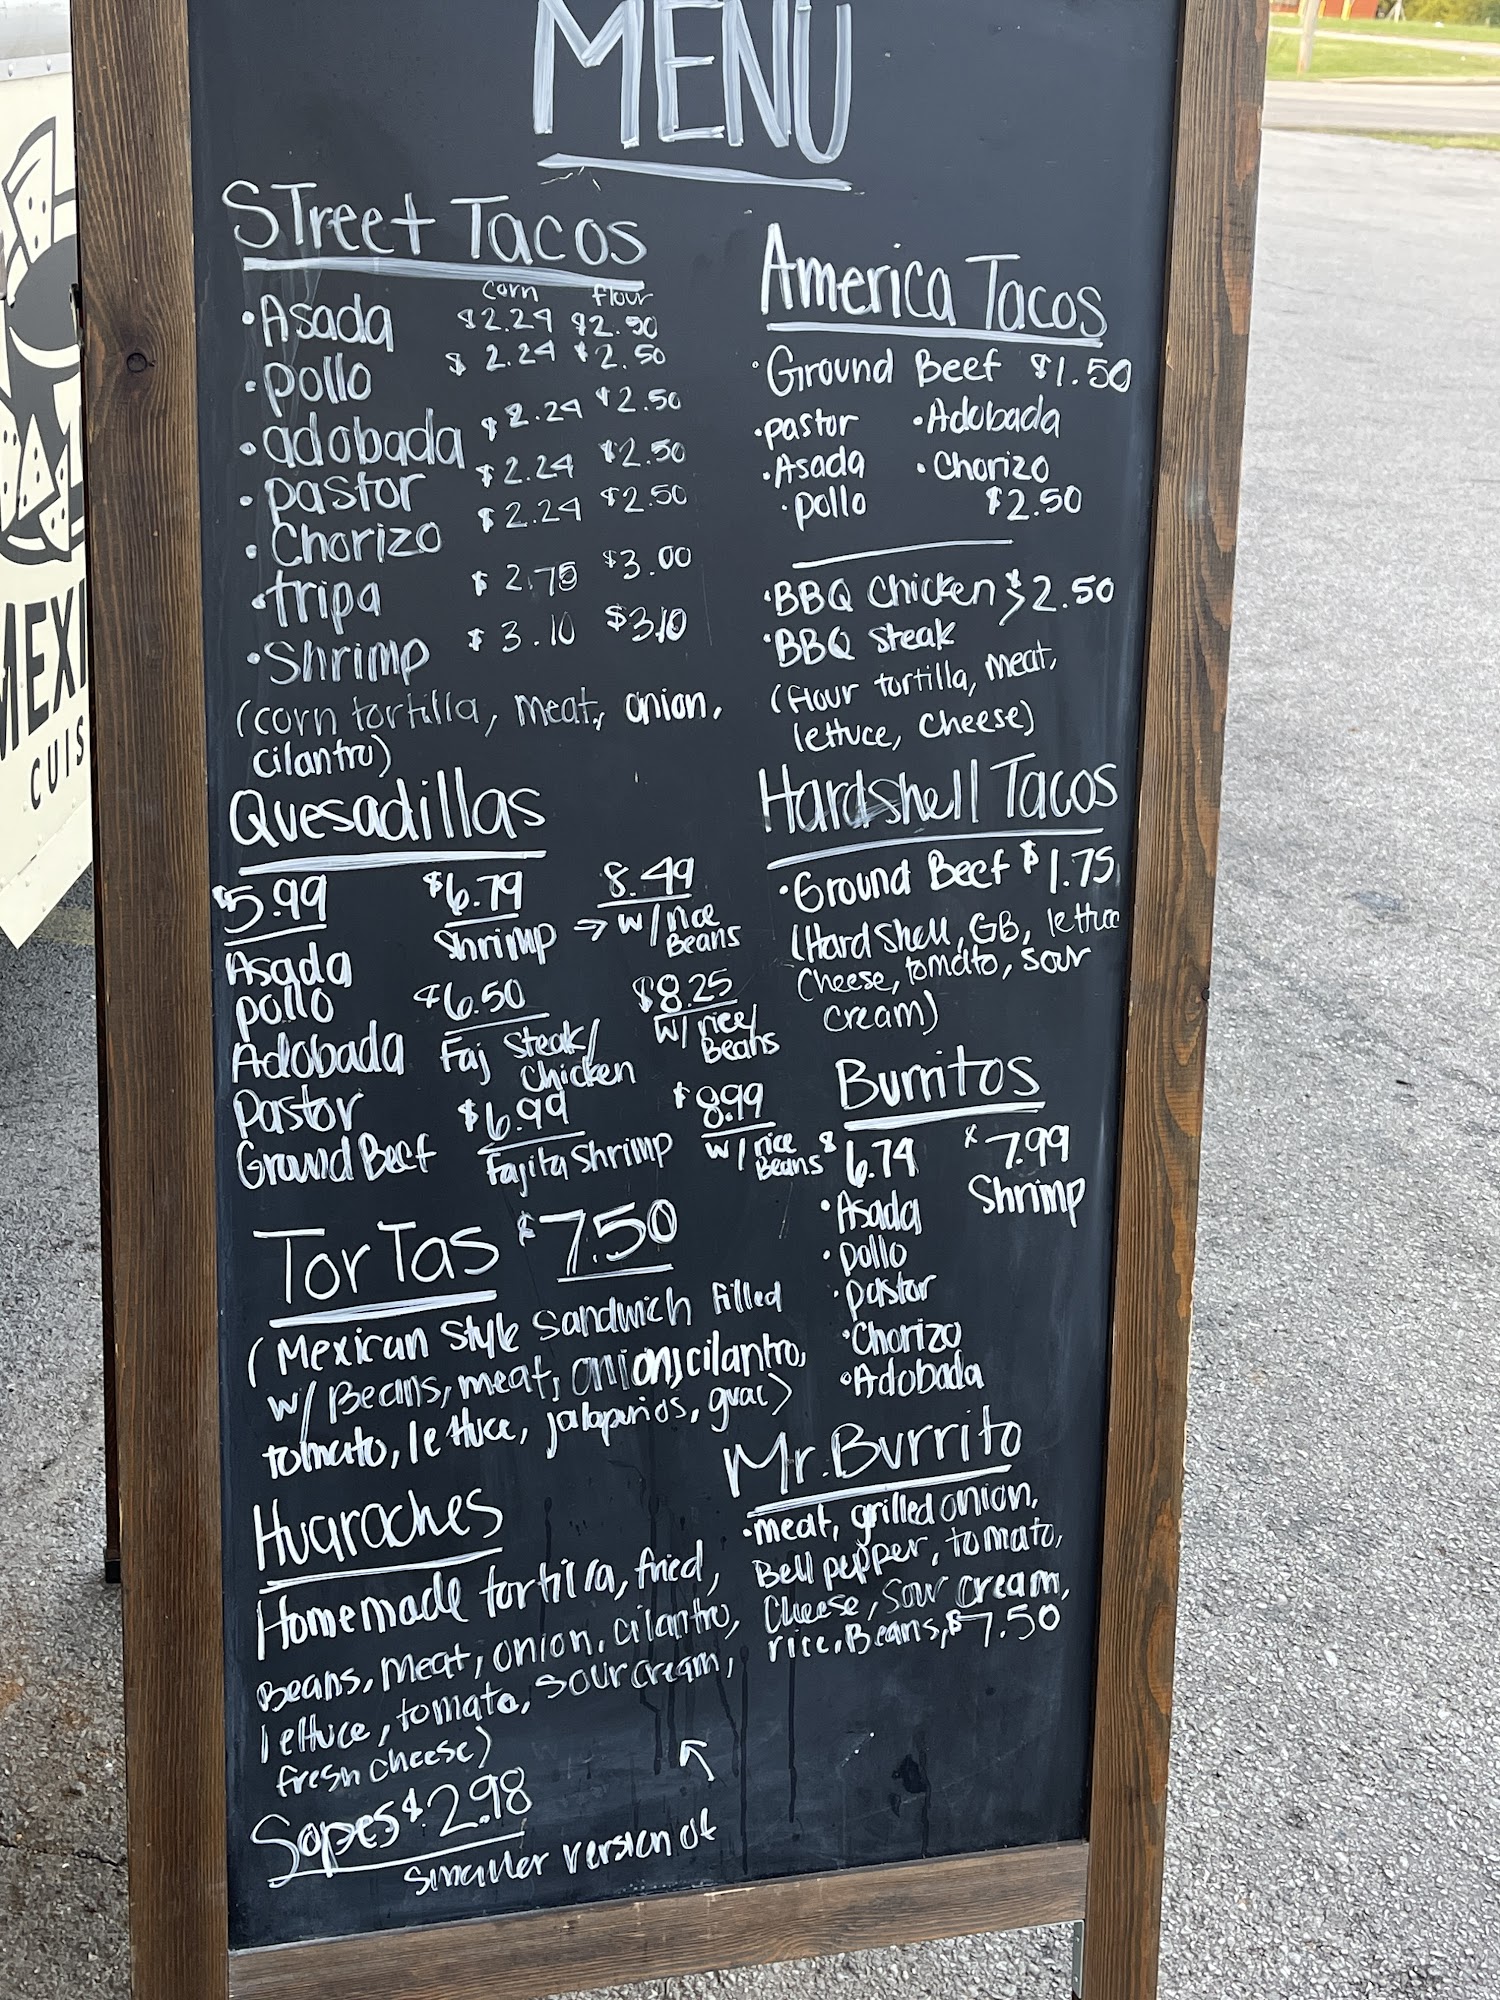 MENU
STreet Tacos
corn flour
• Asada $2.24 $2.50
• pollo $2.24 $2.50
• adobada $2.24 $2.50
• pastor $2.24 $2.50
• Chorizo $2.24 $2.50
• tripa $2.75 $3.00
• Shrimp $3.10 $3.10
(corn tortilla, meat, onion,
cilantro)
Quesadillas
$5.99
Asada
pollo
Adobada
Pastor
Ground Beef
$6.79
Shrimp →
8.49
w/rice
Beans
$6.50
Faj Steak/
Chicken
$8.25
w/ rice/
Beans
$6.99
Fajita Shrimp
$8.99
w/rice
Beans
TorTas $7.50
(Mexican Style Sandwich filled
w/ Beans, meat, onion, cilantro,
tomato, lettuce, jalapeños, guac)
Huaraches
Homemade tortilla, fried,
Beans, meat, onion, cilantro,
lettuce, tomato, sour cream,
fresh cheese)
Sopes $2.98
smaller version of
America Tacos
• Ground Beef $1.50
• pastor • Adobada
• Asada • Chorizo
• pollo $2.50
• BBQ Chicken > $2.50
• BBQ Steak
(flour tortilla, meat,
lettuce, cheese)
Hardshell Tacos
• Ground Beef $1.75
(Hard Shell, GB, lettuce
Cheese, tomato, sour
cream)
Burritos
$6.74
• Asada
• pollo
• pastor
• Chorizo
• Adobada
$7.99
Shrimp
Mr. Burrito
• meat, grilled onion,
Bell pepper, tomato,
Cheese, sour cream,
rice, Beans, $7.50
CUIS